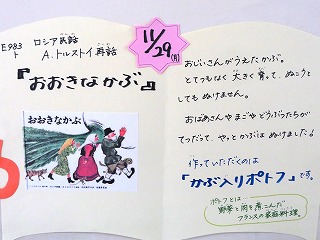 E983
ト
ロシア民話
A.トルストイ再話
『おおきなかぶ』
おおきなかぶ
11/29(月)
おじいさんがうえたかぶ。
とてつもなく大きく育って、ぬこうと
してもぬけません。
おばあさんやまごやどうぶつたちが
てつだって、やっとかぶはぬけました!
作っていただくのは
「かぶ入りポトフ」です。
ポトフとは…
野菜と肉を煮こんだ
フランスの家庭料理